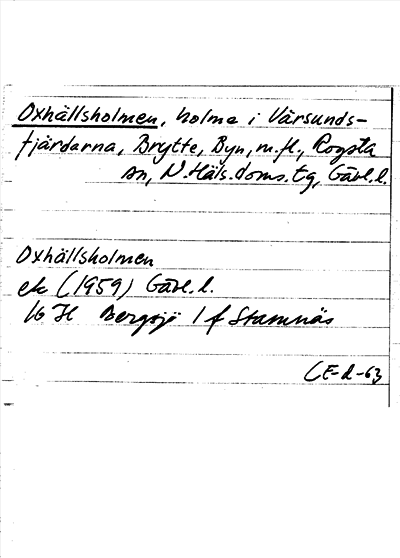 Oxhällsholmen, holme i Vårsunds-
fjärdarna, Brytte, Byn, m.fl., Rogsta
sn, N.Häls.doms.tg, Gävl.l.
Oxhällsholmen
ek (1959) Gävl.l.
16 H Bergsjö 1 f Stamnäs
CE-d-63